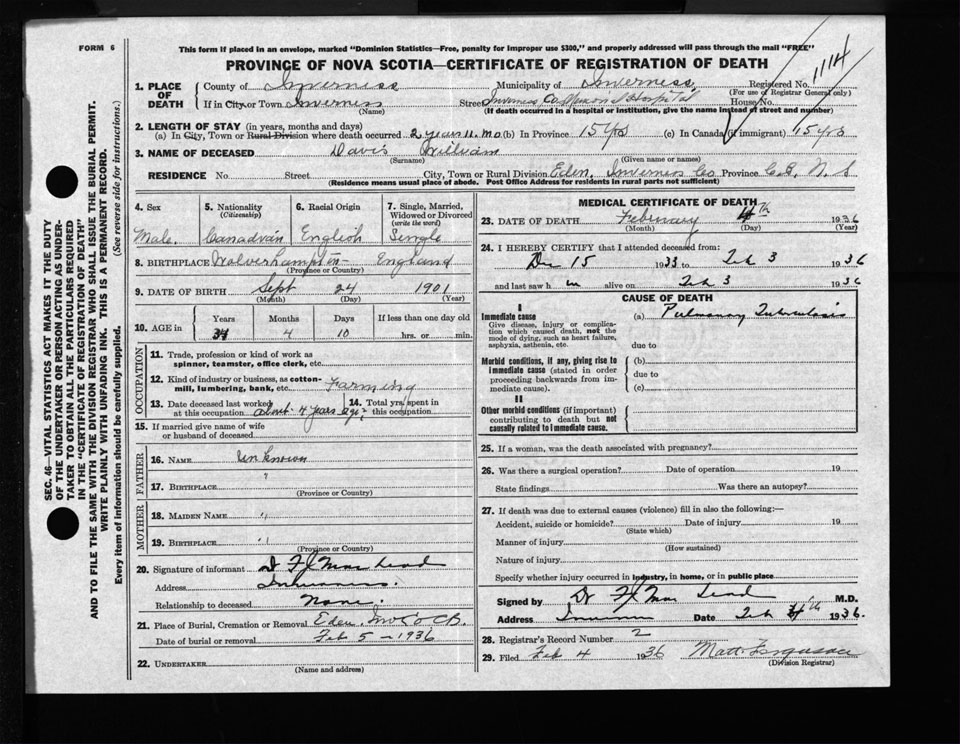 FORM 6
This form if placed in an envelope, marked "Dominion Statistics—Free, penalty for improper use $300," and properly addressed will pass through the mail "FREE"
PROVINCE OF NOVA SCOTIA—CERTIFICATE OF REGISTRATION OF DEATH
1114
1. PLACE OF DEATH County of Inverness Municipality of Inverness Registered No.
(For use of Registrar General only)
If in City or Town Inverness Street Inverness Co. Memorial Hospital House No.
(Name) (If death occurred in a hospital or institution, give the name instead of street and number)
2. LENGTH OF STAY (in years, months and days)
(a) In City, Town or Rural Division where death occurred 2 years 11 mo (b) In Province 15 yrs (c) In Canada (if immigrant) 15 yrs
3. NAME OF DECEASED Davis William
(Surname) (Given name or names)
RESIDENCE No. Street City, Town or Rural Division Eden, Inverness Co Province C.B, N.S
(Residence means usual place of abode. Post Office Address for residents in rural parts not sufficient)
4. Sex Male
5. Nationality (Citizenship) Canadian
6. Racial Origin English
7. Single, Married, Widowed or Divorced (write the word) Single
8. BIRTHPLACE Wolverhampton England
(Province or Country)
9. DATE OF BIRTH Sept 24 1901
(Month) (Day) (Year)
10. AGE in Years Months Days If less than one day old
34 4 10 hrs. or min.
OCCUPATION
11. Trade, profession or kind of work as spinner, teamster, office clerk, etc.
12. Kind of industry or business, as cotton-mill, lumbering, bank, etc. Farming
13. Date deceased last worked at this occupation about 4 years ago
14. Total yrs. spent in this occupation
15. If married give name of wife or husband of deceased
FATHER
16. NAME Unknown
17. BIRTHPLACE ?
(Province or Country)
MOTHER
18. MAIDEN NAME "
19. BIRTHPLACE "
(Province or Country)
20. Signature of informant Dr FJ MacLeod
Address Inverness.
Relationship to deceased None.
21. Place of Burial, Cremation or Removal Eden, Inv Co CB.
Date of burial or removal Feb 5 - 1936
22. UNDERTAKER
(Name and address)
MEDICAL CERTIFICATE OF DEATH
23. DATE OF DEATH February 4th 1936
(Month) (Day) (Year)
24. I HEREBY CERTIFY that I attended deceased from:
Dec 15 1933 to Feb 3 1936
and last saw him alive on Feb 3 1936
CAUSE OF DEATH
I
Immediate cause (a) Pulmonary Tuberculosis
Give disease, injury or complication which caused death, not the mode of dying, such as heart failure, asphyxia, asthenia, etc.
due to
Morbid conditions, if any, giving rise to immediate cause (stated in order proceeding backwards from immediate cause).
(b)
due to
(c)
II
Other morbid conditions (if important) contributing to death but not causally related to immediate cause.
25. If a woman, was the death associated with pregnancy?
26. Was there a surgical operation? Date of operation 19
State findings Was there an autopsy?
27. If death was due to external causes (violence) fill in also the following:—
Accident, suicide or homicide? Date of injury 19
(State which)
Manner of injury
(How sustained)
Nature of injury
Specify whether injury occurred in industry, in home, or in public place
Signed by Dr FJ MacLeod M.D.
Address Inverness Date Feb 4th 1936.
28. Registrar's Record Number 2
29. Filed Feb 4 1936 Matt. Ferguson
(Division Registrar)
SEC. 46—VITAL STATISTICS ACT MAKES IT THE DUTY
OF THE UNDERTAKER OR PERSON ACTING AS UNDER-
TAKER TO OBTAIN ALL THE PARTICULARS REQUIRED
IN THE "CERTIFICATE OF REGISTRATION OF DEATH"
AND TO FILE THE SAME WITH THE DIVISION REGISTRAR WHO SHALL ISSUE THE BURIAL PERMIT.
WRITE PLAINLY WITH UNFADING INK. THIS IS A PERMANENT RECORD.
Every item of information should be carefully supplied. (See reverse side for instructions.)